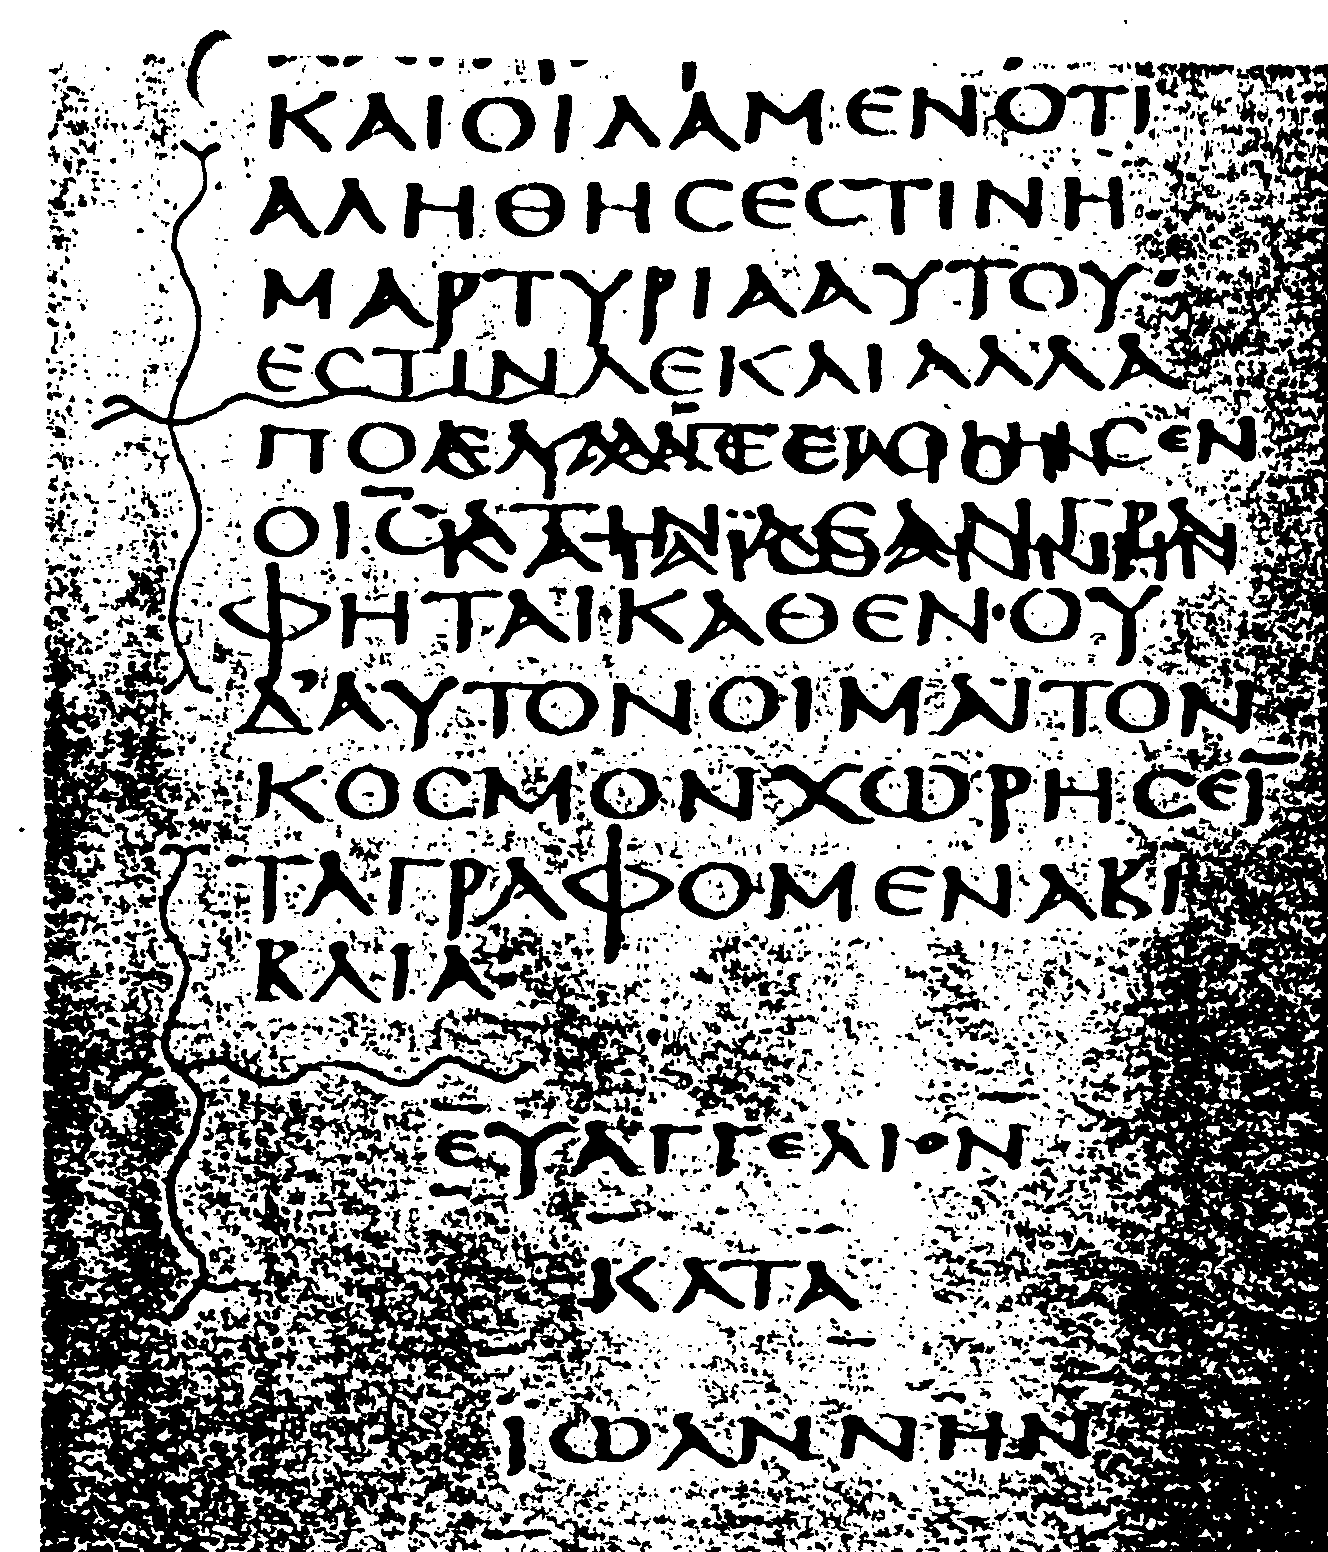 ΚΑΙΟΙΔΑΜΕΝΟΤΙ
ΑΛΗΘΗϹΕϹΤΙΝΗ
ΜΑΡΤΥΡΙΑΑΥΤΟΥ·
ΕϹΤΙΝΔΕΚΑΙΑΛΛΑ
ΠΟΛΛΑΑΕΠΟΙΗϹΕΝ
ΟΙϹΑΤΙΝΑΕΑΝΓΡΑ
ΦΗΤΑΙ·ΚΑΘΕΝ·ΟΥ
Δ’ΑΥΤΟΝΟΙΜΑΙΤΟΝ
ΚΟϹΜΟΝΧΩΡΗϹΕΙ̅
ΤΑΓΡΑΦΟΜΕΝΑΒΙ
ΒΛΙΑ
ΕΥΑΓΓΕΛΙΟΝ
ΚΑΤΑ
ΙΩΑΝΝΗΝ